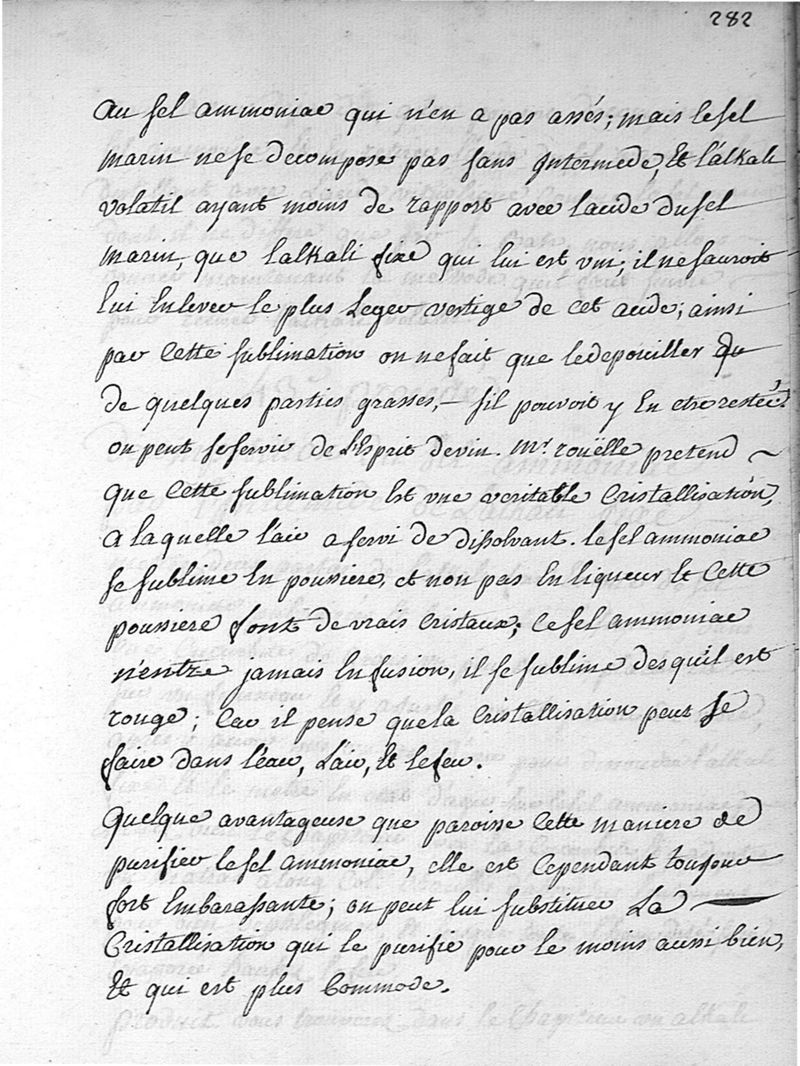 282
au sel ammoniac qui n'en a pas assés; mais le sel
marin ne se decompose pas sans Intermede, Et l'alkali
volatil ayant moins de rapport avec l'acide du sel
marin, que l'alkali fixe qui lui est uni; il ne sauroit
lui Enlever le plus Leger vestige de cet acide; ainsi
par Cette sublimation on ne fait que le depoüiller
de quelques parties grasses, – s'il pouvoit y En etre resté.
on peut se servir de L'Esprit de vin. Mr. roüelle pretend ~
que Cette sublimation Est une veritable Cristallisation,
a laquelle l'air a servi de dissolvant. le sel ammoniac
se sublime En poussiere, et non pas En liqueur Et Cette
poussiere sont de vrais Cristaux; Ce sel ammoniac
n'entre jamais En fusion, il se sublime des qu'il est
rouge; Car il pense que la Cristallisation peut se
faire dans l'eau, L'air, Et le feu.
Quelque avantageuse que paroisse Cette maniere de
purifier le sel ammoniac, elle est Cependant toujours
fort Embarassante; on peut lui substituer La —
Cristallisation qui le purifie pour le moins aussi bien,
Et qui est plus Commode.